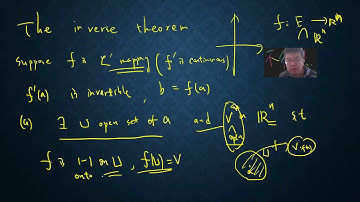 The inverse theorem
f: E → ℝⁿ
∩
ℝⁿ
suppose f is C' mapping (f' is continuous)
f'(a) is invertible, b = f(a)
(a) ∃ U open set of a and V open ℝⁿ s.t
f is 1-1 on U, f(U) = V
onto